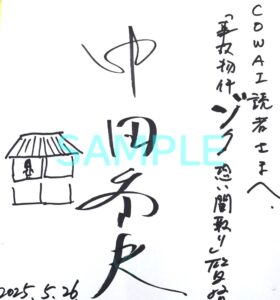 COWAI読者さまへ.
「事故物件
ゾク 恐い間取り」
中田秀夫
SAMPLE
2025.5.26